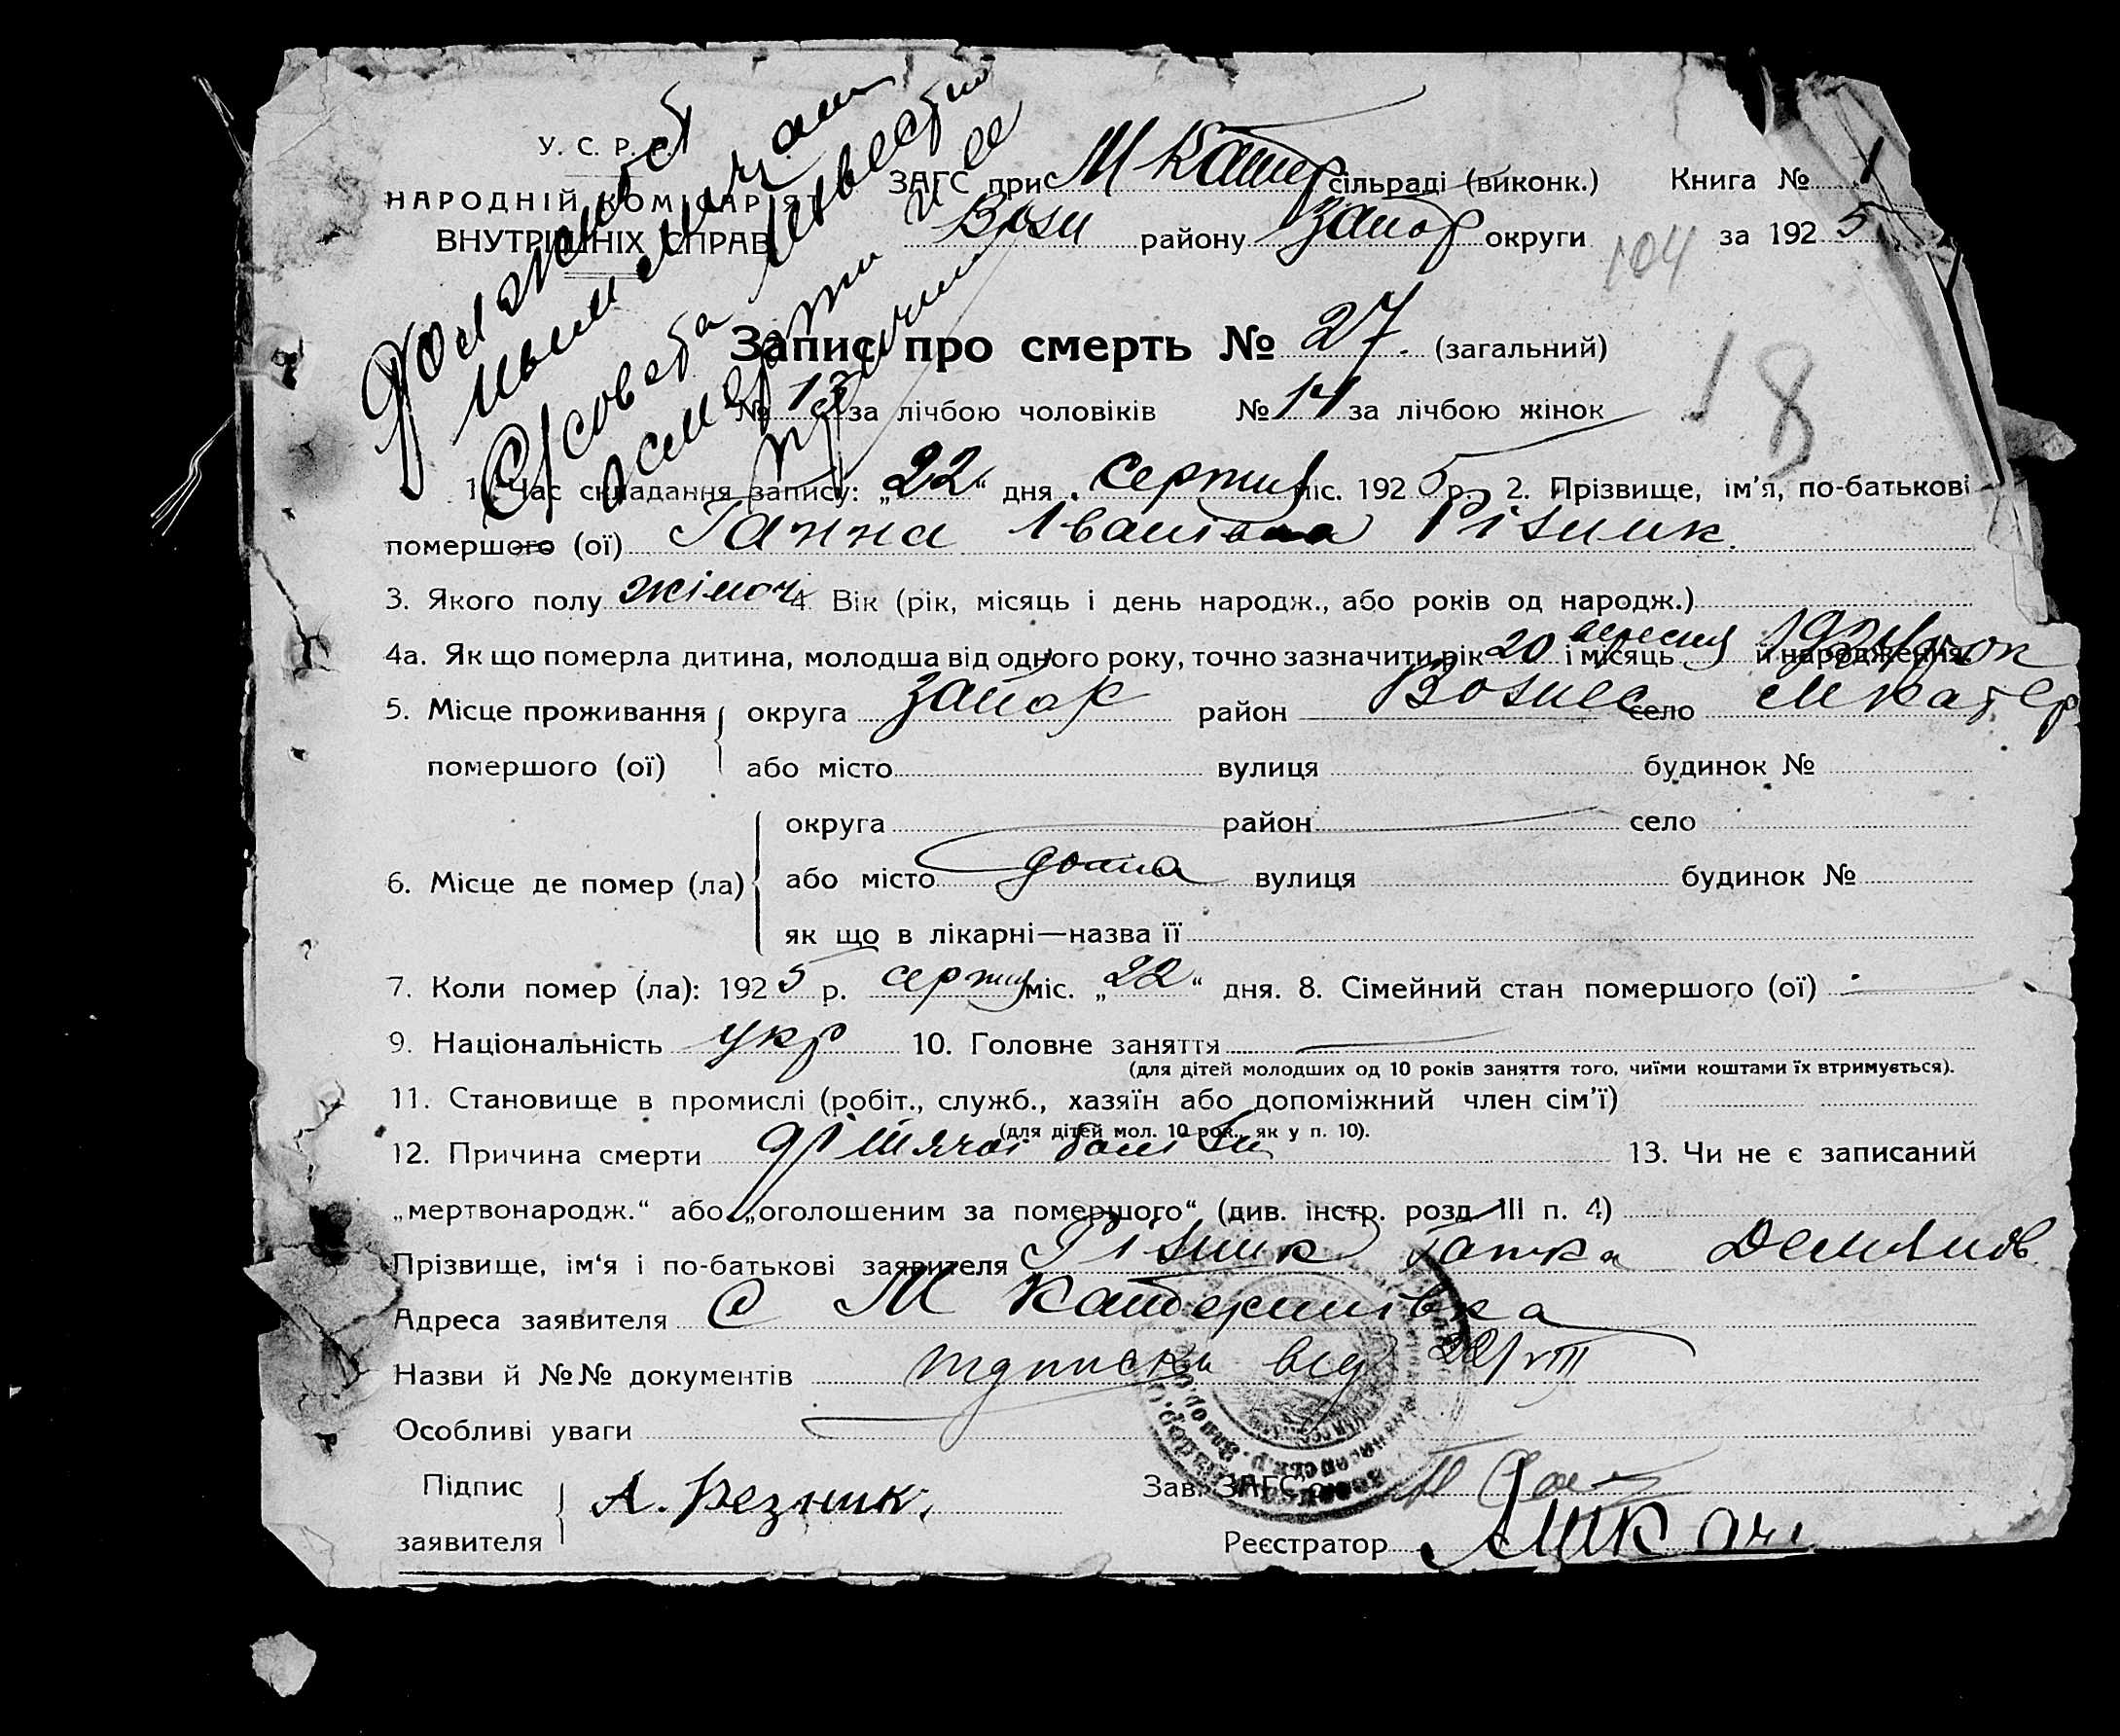 У. С. Р. Р.
НАРОДНІЙ КОМІСАРІЯТ
ВНУТРІШНІХ СПРАВ
ЗАГС при М Катер сільраді (виконк.) Книга № 1
Возн району Запор округи 104 за 1925
Запис про смерть № 27. (загальний)
№ 13 за лічбою чоловіків № 14 за лічбою жінок
18
1. Час складання запису: „22“ дня серпня міс. 1925 р. 2. Прізвище, ім’я, по-батькові
помершого (ої) Ганна Іванівна Різник
3. Якого полу жіноч 4. Вік (рік, місяць і день народж., або років од народж.)
4а. Як що померла дитина, молодша від одного року, точно зазначити рік 20 і місяць вересня й народження. рок
5. Місце проживання округа Запор район Вознес село М Катер
помершого (ої) або місто вулиця будинок №
округа район село
6. Місце де помер (ла) або місто дома вулиця будинок №
як що в лікарні—назва її
7. Коли помер (ла): 1925 р. серпня міс. „22“ дня. 8. Сімейний стан помершого (ої)
9. Національність укр 10. Головне заняття
(для дітей молодших од 10 років заняття того, чиїми коштами їх втримується).
11. Становище в промислі (робіт., служб., хазяїн або допоміжний член сім’ї)
(для дітей мол. 10 рок., як у п. 10).
12. Причина смерти дітячої 13. Чи не є записаний
„мертвонародж.“ або „оголошеним за помершого“ (див. інстр. розд III п. 4)
Прізвище, ім‘я і по-батькові заявителя Різник Гапка Демянов
Адреса заявителя С М Катеринівка
Назви й №№ документів підписка від 22/VIII
Особливі уваги
Підпис заявителя А. Резник.
Зав. ЗАГС‘ом
Реєстратор